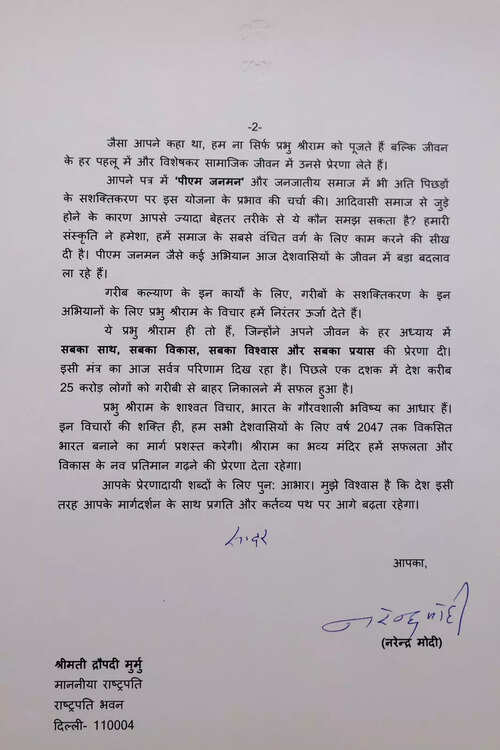 -2-
जैसा आपने कहा था, हम ना सिर्फ प्रभु श्रीराम को पूजते हैं बल्कि जीवन
के हर पहलू में और विशेषकर सामाजिक जीवन में उनसे प्रेरणा लेते हैं।
आपने पत्र में 'पीएम जनमन' और जनजातीय समाज में भी अति पिछड़ों
के सशक्तिकरण पर इस योजना के प्रभाव की चर्चा की। आदिवासी समाज से जुड़े
होने के कारण आपसे ज्यादा बेहतर तरीके से ये कौन समझ सकता है? हमारी
संस्कृति ने हमेशा, हमें समाज के सबसे वंचित वर्ग के लिए काम करने की सीख
दी है। पीएम जनमन जैसे कई अभियान आज देशवासियों के जीवन में बड़ा बदलाव
ला रहे हैं।
गरीब कल्याण के इन कार्यों के लिए, गरीबों के सशक्तिकरण के इन
अभियानों के लिए प्रभु श्रीराम के विचार हमें निरंतर ऊर्जा देते हैं।
ये प्रभु श्रीराम ही तो हैं, जिन्होंने अपने जीवन के हर अध्याय में
सबका साथ, सबका विकास, सबका विश्वास और सबका प्रयास की प्रेरणा दी।
इसी मंत्र का आज सर्वत्र परिणाम दिख रहा है। पिछले एक दशक में देश करीब
25 करोड़ लोगों को गरीबी से बाहर निकालने में सफल हुआ है।
प्रभु श्रीराम के शाश्वत विचार, भारत के गौरवशाली भविष्य का आधार हैं।
इन विचारों की शक्ति ही, हम सभी देशवासियों के लिए वर्ष 2047 तक विकसित
भारत बनाने का मार्ग प्रशस्त करेगी। श्रीराम का भव्य मंदिर हमें सफलता और
विकास के नव प्रतिमान गढ़ने की प्रेरणा देता रहेगा।
आपके प्रेरणादायी शब्दों के लिए पुन: आभार। मुझे विश्वास है कि देश इसी
तरह आपके मार्गदर्शन के साथ प्रगति और कर्तव्य पथ पर आगे बढ़ता रहेगा।
सादर
आपका,
नरेन्द्र मोदी
(नरेन्द्र मोदी)
श्रीमती द्रौपदी मुर्मु
माननीया राष्ट्रपति
राष्ट्रपति भवन
दिल्ली- 110004